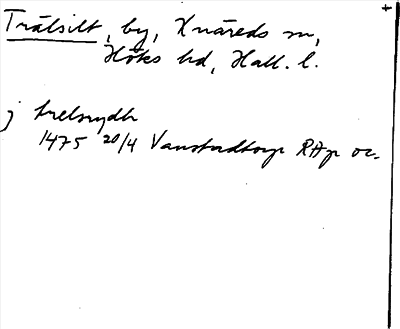 Trälsilt, by, Knäreds sn,
Höks hd, Hall. l.
j trelsrydh
1475 20/4 Vanstadtorp RAp or.